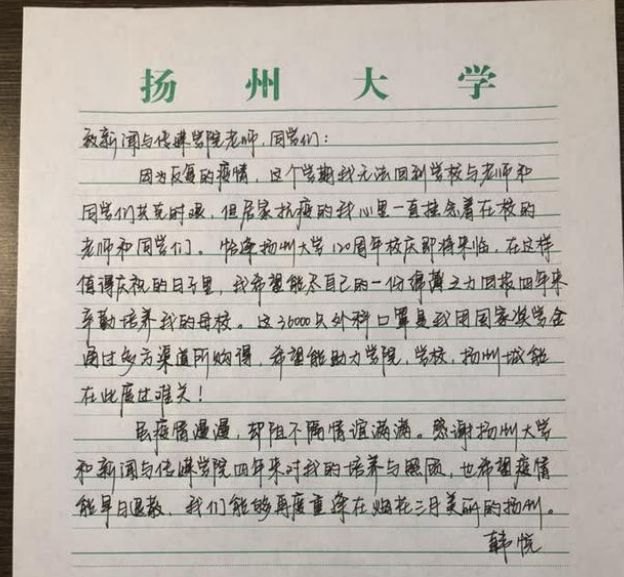 扬州大学
致新闻与传媒学院老师、同学们：
因为反复的疫情，这个学期我无法回到学校与老师和
同学们共克时艰，但居家抗疫的我心里一直挂念着在校的
老师和同学们。恰逢扬州大学120周年校庆即将来临，在这样
值得庆祝的日子里，我希望能尽自己的一份绵薄之力回报四年来
辛勤培养我的母校。这36000只外科口罩是我用国家奖学金
通过多方渠道所购得，希望能助力学院，学校，扬州城能
在此度过难关！
虽疫情漫漫，却阻不隔情谊满满。感谢扬州大学
和新闻与传媒学院四年来对我的培养与照顾，也希望疫情
能早日退散，我们能够再度重逢在烟花三月美丽的扬州。
韩悦